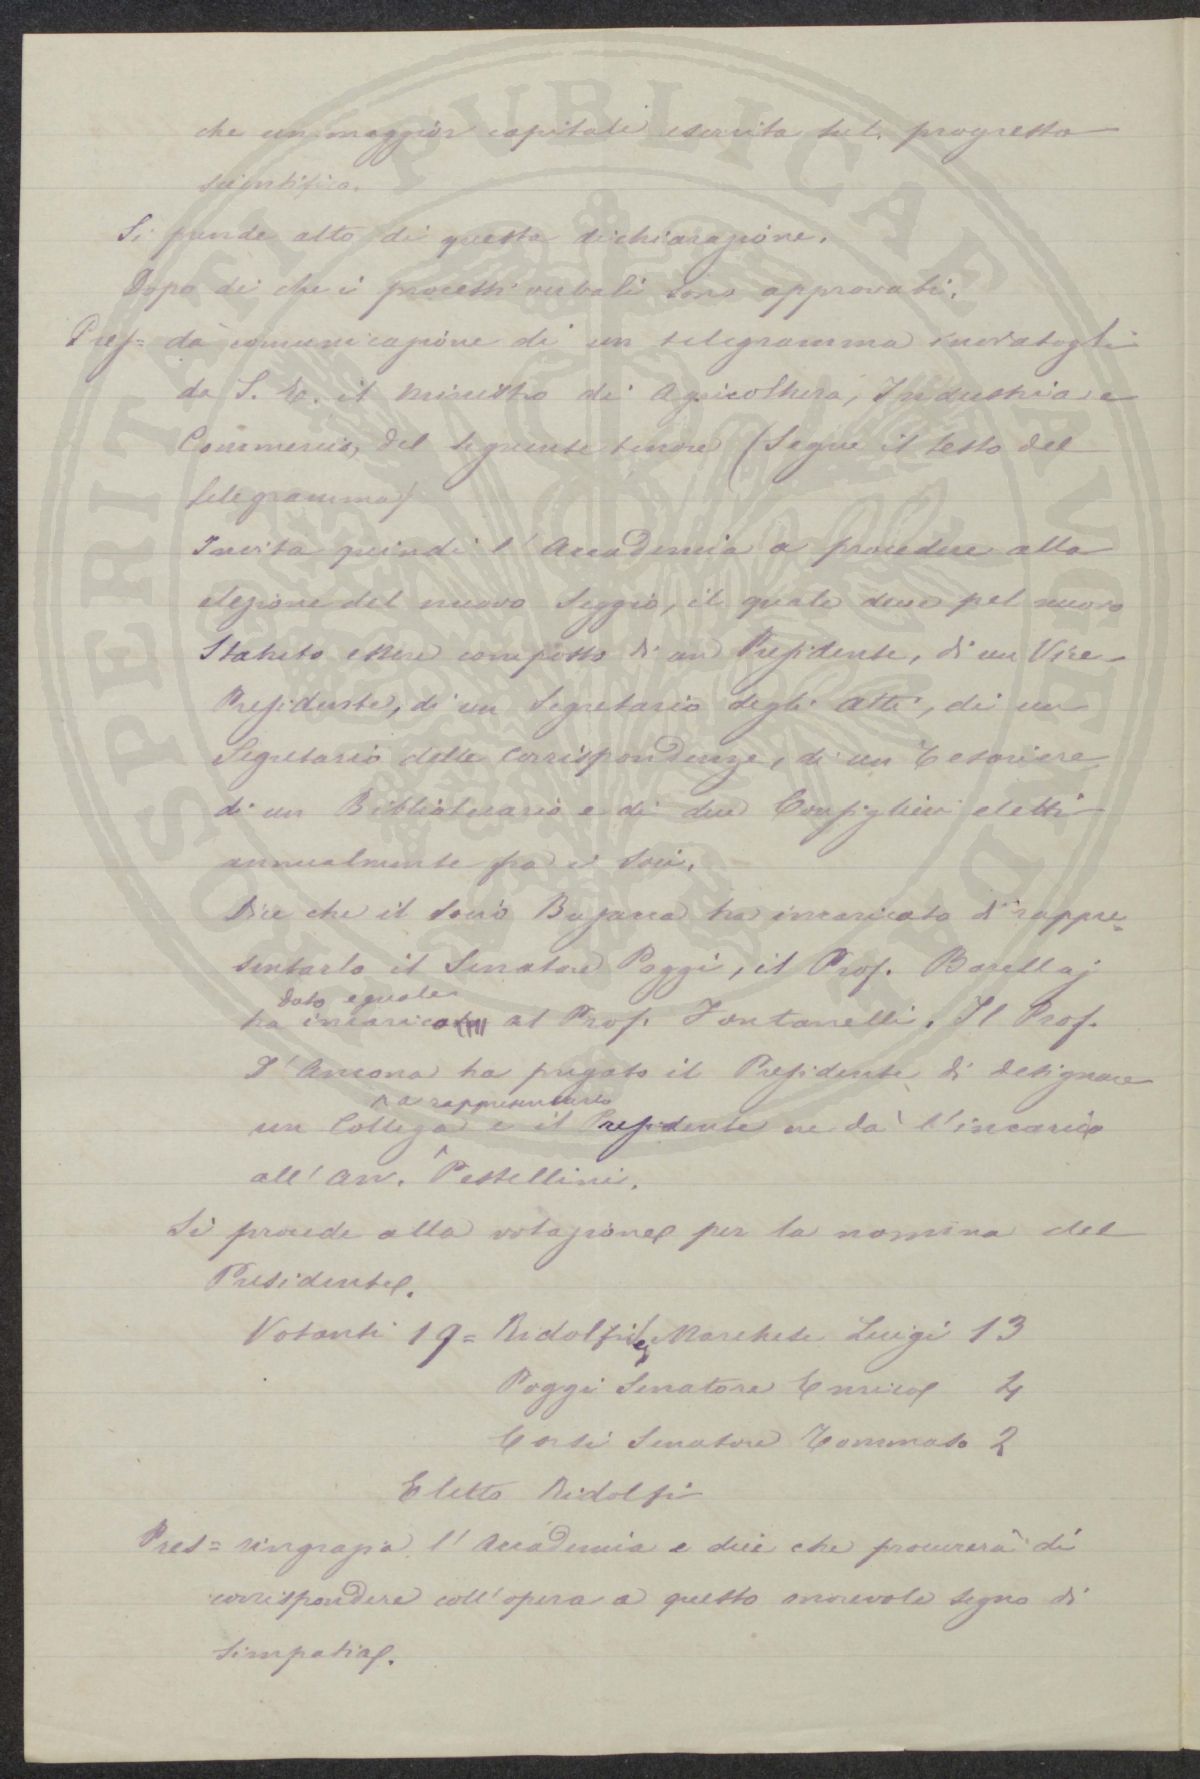 che un maggior capitale esercita sul progresso
scientifico.
Si prende atto di questa dichiarazione.
Dopo di che i processi verbali sono approvati.
Pres= dà comunicazione di un telegramma inviatogli
da S. E. il Ministro di Agricoltura, Industria e
Commercio, del seguente tenore (Segue il testo del
telegramma)
Invita quindi l'Accademia a procedere alla
elezione del nuovo Seggio, il quale deve pel nuovo
Statuto essere composto di un Presidente, di un Vice-
Presidente, di un Segretario degli Atti, di un
Segretario delle Corrispondenze, di un Tesoriere
di un Bibliotecario e di due Consiglieri eletti
annualmente fra i Soci.
Dice che il Socio ha incaricato di rappre=
sentarlo il Senatore Poggi, il Prof. Barellaj
dato eguale
ha incarico al Prof. Fontanelli. Il Prof.
D'Ancona ha pregato il Presidente di designare
a rappresentarlo
un Collega e il Presidente ne dà l'incarico
all'Avv. Pestellini.
Si procede alla votazione per la nomina del
Presidente.
Votanti 19= Ridolfi Marchese Luigi 13
Poggi Senatore Enrico 4
Corsi Senatore Tommaso 2
Eletto Ridolfi
Pres= ringrazia l'Accademia e dice che procurerà di
corrispondere coll'opera a questo onorevole segno di
simpatia.
PROSPERITATI PUBLICAE AUGENDAE